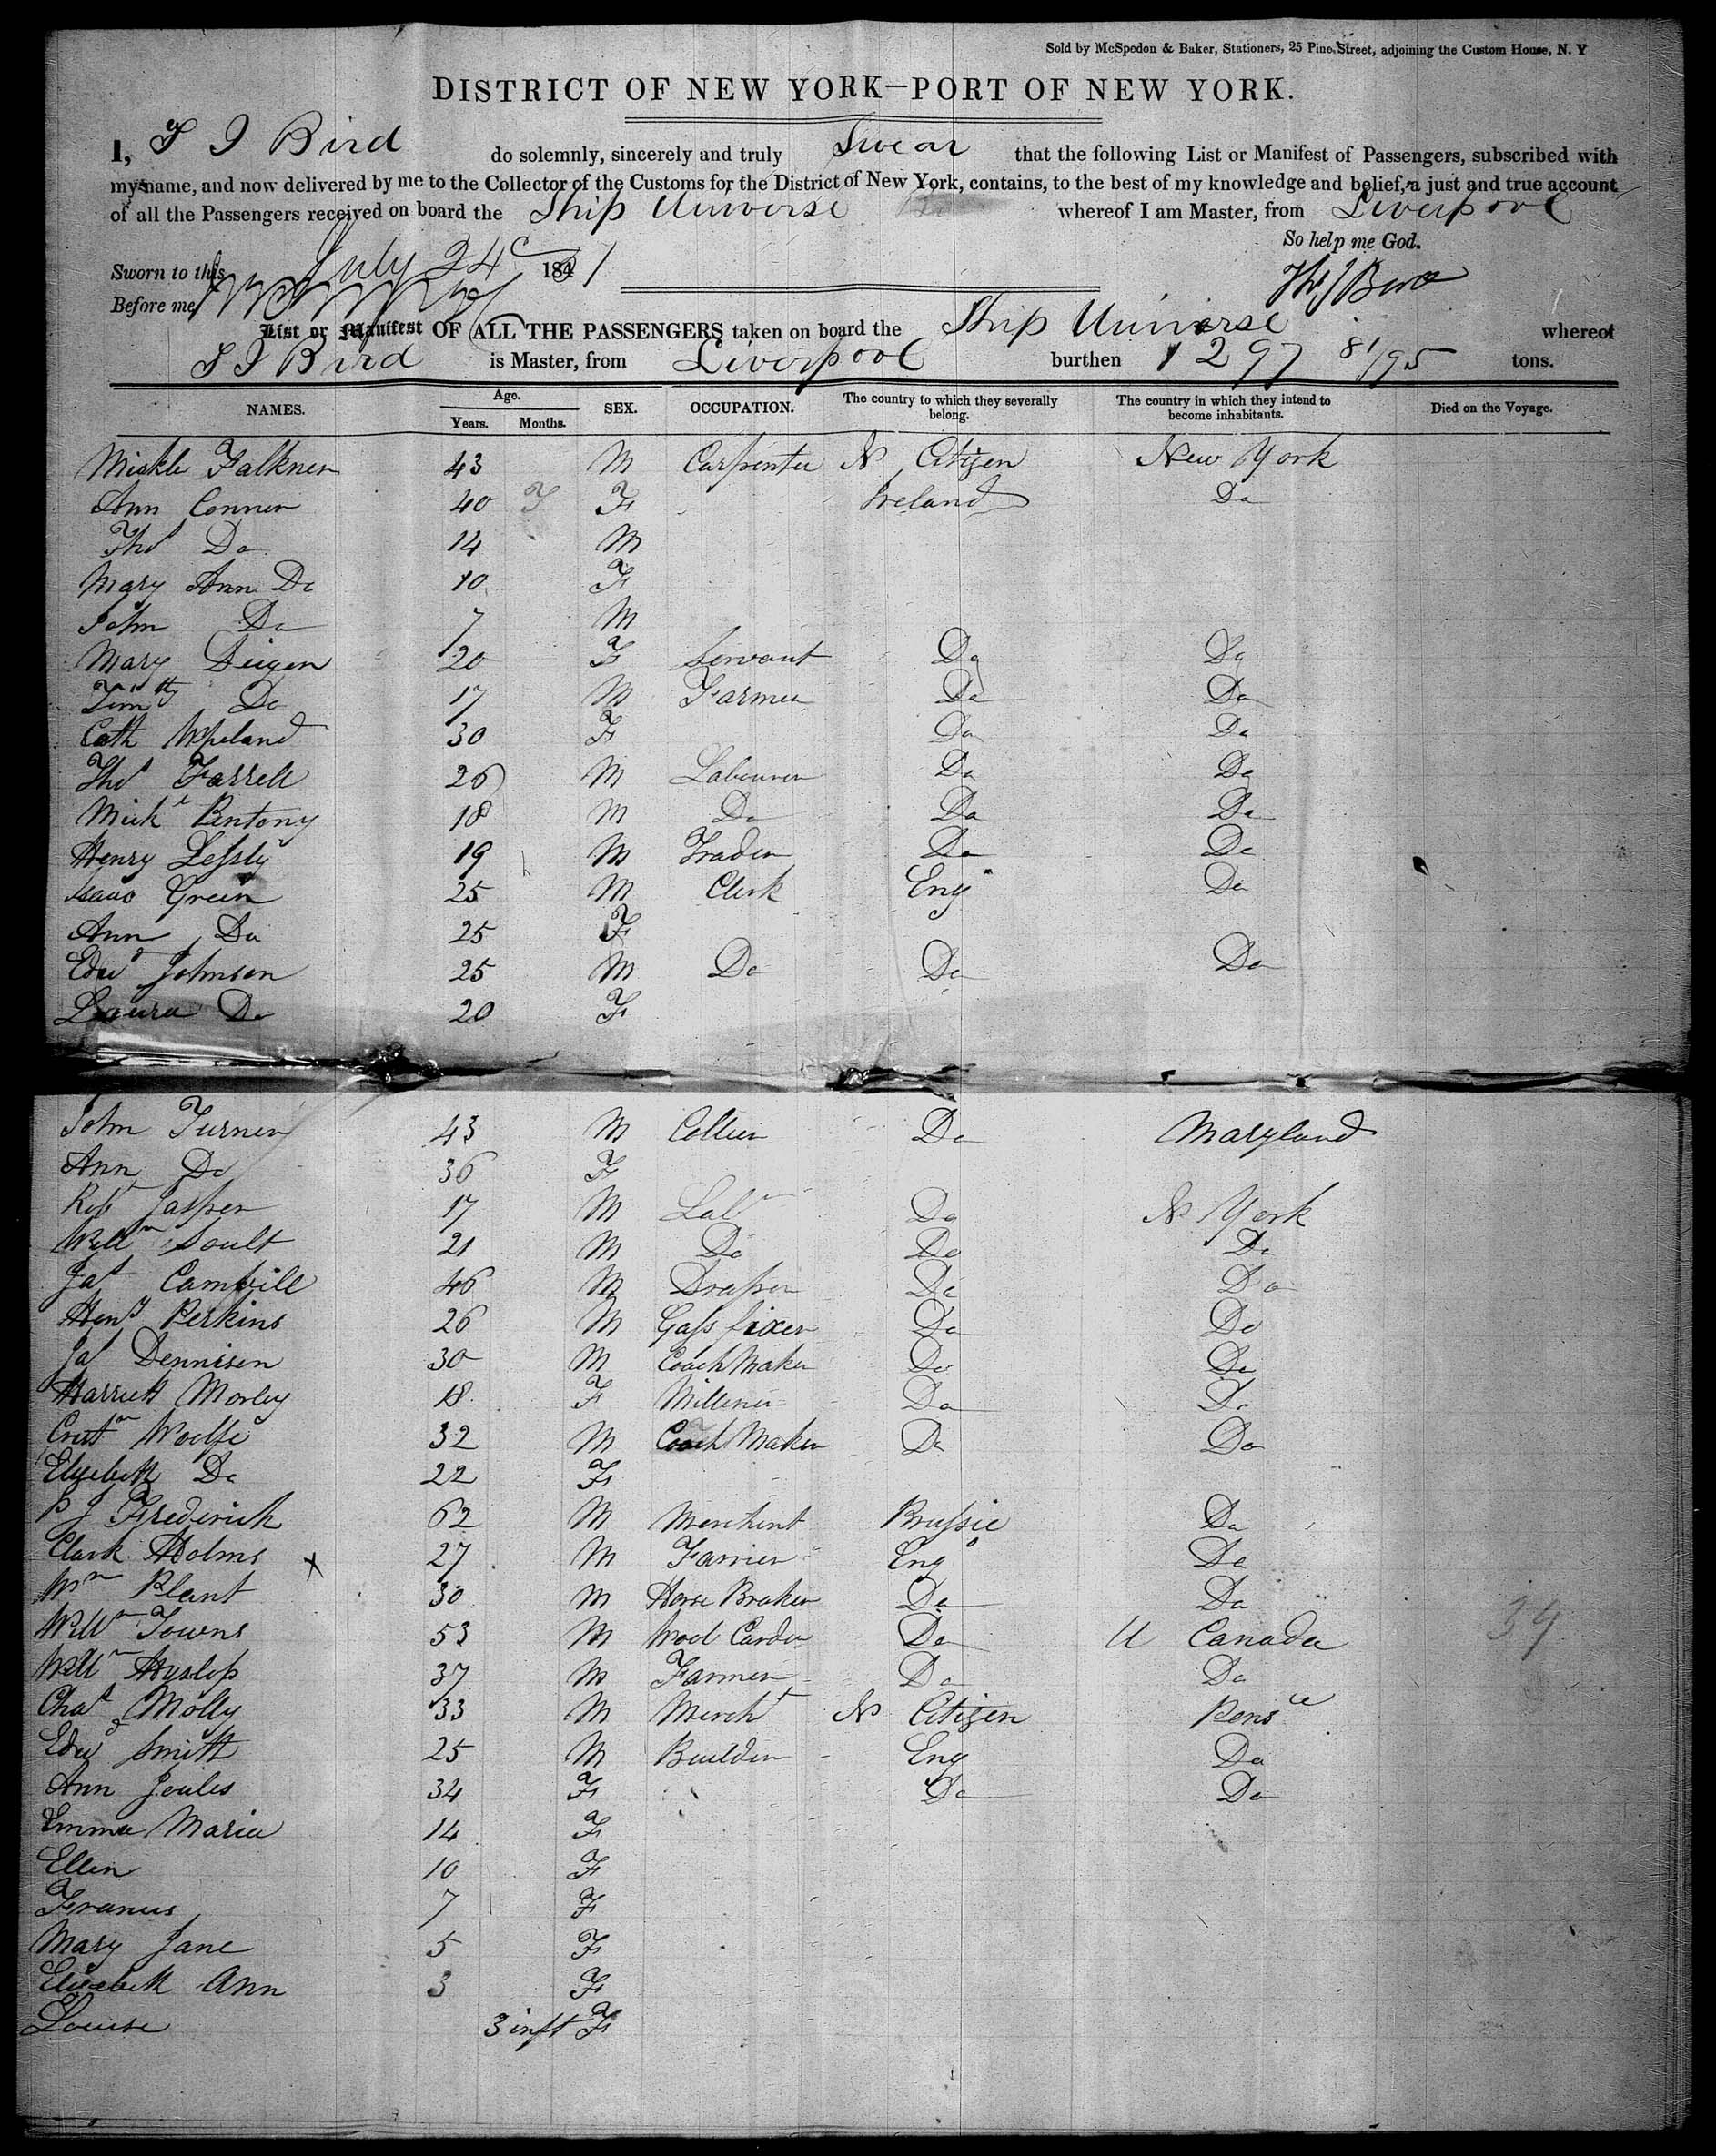 Sold by McSpedon & Baker, Stationers, 25 Pine Street, adjoining the Custom House, N. Y
DISTRICT OF NEW YORK—PORT OF NEW YORK.
I, T J Bird do solemnly, sincerely and truly Swear that the following List or Manifest of Passengers, subscribed with
my name, and now delivered by me to the Collector of the Customs for the District of New York, contains, to the best of my knowledge and belief, a just and true account
of all the Passengers received on board the Ship Universe whereof I am Master, from Liverpool
So help me God.
Sworn to this July 24 1851
Thos J Bird
Before me
List or Manifest OF ALL THE PASSENGERS taken on board the Ship Universe whereof
T J Bird is Master, from Liverpool burthen 1297 81/95 tons.
NAMES. Age. Years. Months. SEX. OCCUPATION. The country to which they severally belong. The country in which they intend to become inhabitants. Died on the Voyage.
Mickle Falkner 43 M Carpenter N Citizen New York
Ann Conner 40 F F Ireland Do
Thos Do 14 M
Mary Ann Do 10 F
John Do 7 M
Mary Deigen 20 F Servant Do Do
Timthy Do 17 M Farmer Do Do
Cath Wheland 30 F Do Do
Thos Farrell 26 M Labourer Do Do
Mick Pentony 18 M Do Do Do
Henry Lessly 19 M Trader Do Do
Isaac Green 25 M Clerk Eng Do
Ann Do 25 F
Edwd Johnson 25 M Do Do Do
Laura Do 20 F
John Turner 43 M Collier Do Maryland
Ann Do 36 F
Robt Jasper 17 M Labr Do N York
Willm Soult 21 M Do Do Do
Jas Campill 46 M Draper Do Do
Heny Perkins 26 M Gass fixer Do Do
Jas Dennison 30 M Coach Maker Do Do
Harriett Morley 18 F Millener Do Do
Woelfe 32 M Coach Maker Do Do
Elizebeth Do 22 F
P J Frederick 62 M Merchent Prussie Do
Clark Holms x 27 M Farrier Eng Do
Wm Plant 30 M Horse Braker Do Do
Willm Towns 53 M Wool Carder Do U Canada 39
Willm Hyslop 37 M Farmer Do Do
Chas Molly 33 M Mercht N Citizen Pensce
Edwd Smith 25 M Builder Eng Do
Ann Joules 34 F Do Do
Emma Maria 14 F
Ellen 10 F
Francis 7 F
Mary Jane 5 F
Elizebeth Ann 3 F
Louise 3 inft F